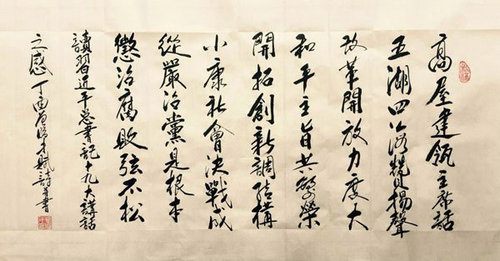 高屋建瓴主席話
五湖四海競揚聲
改革開放力度大
和平主旨共繁榮
開拓創新調結構
小康社會決戰成
從嚴治黨是根本
懲治腐敗弦不松
讀習近平总書記十九大講話
之感 丁酉 才賦詩並書